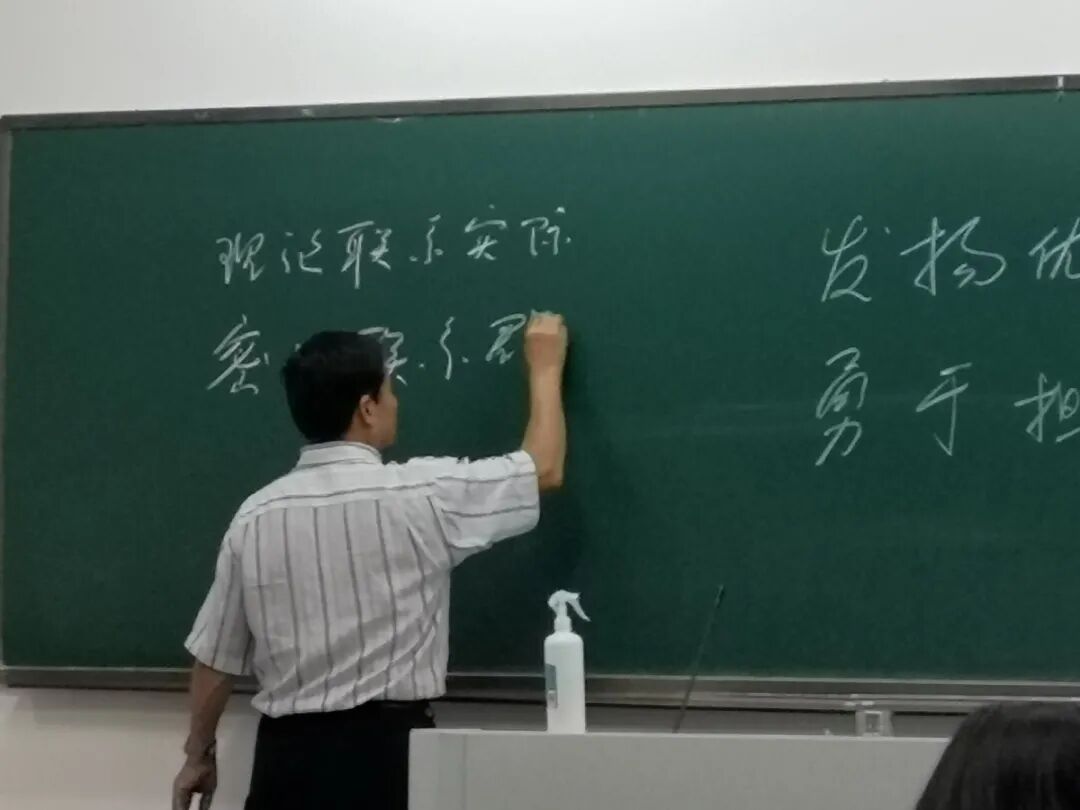 理论联系实际
密 联系群
发扬优
勇于担